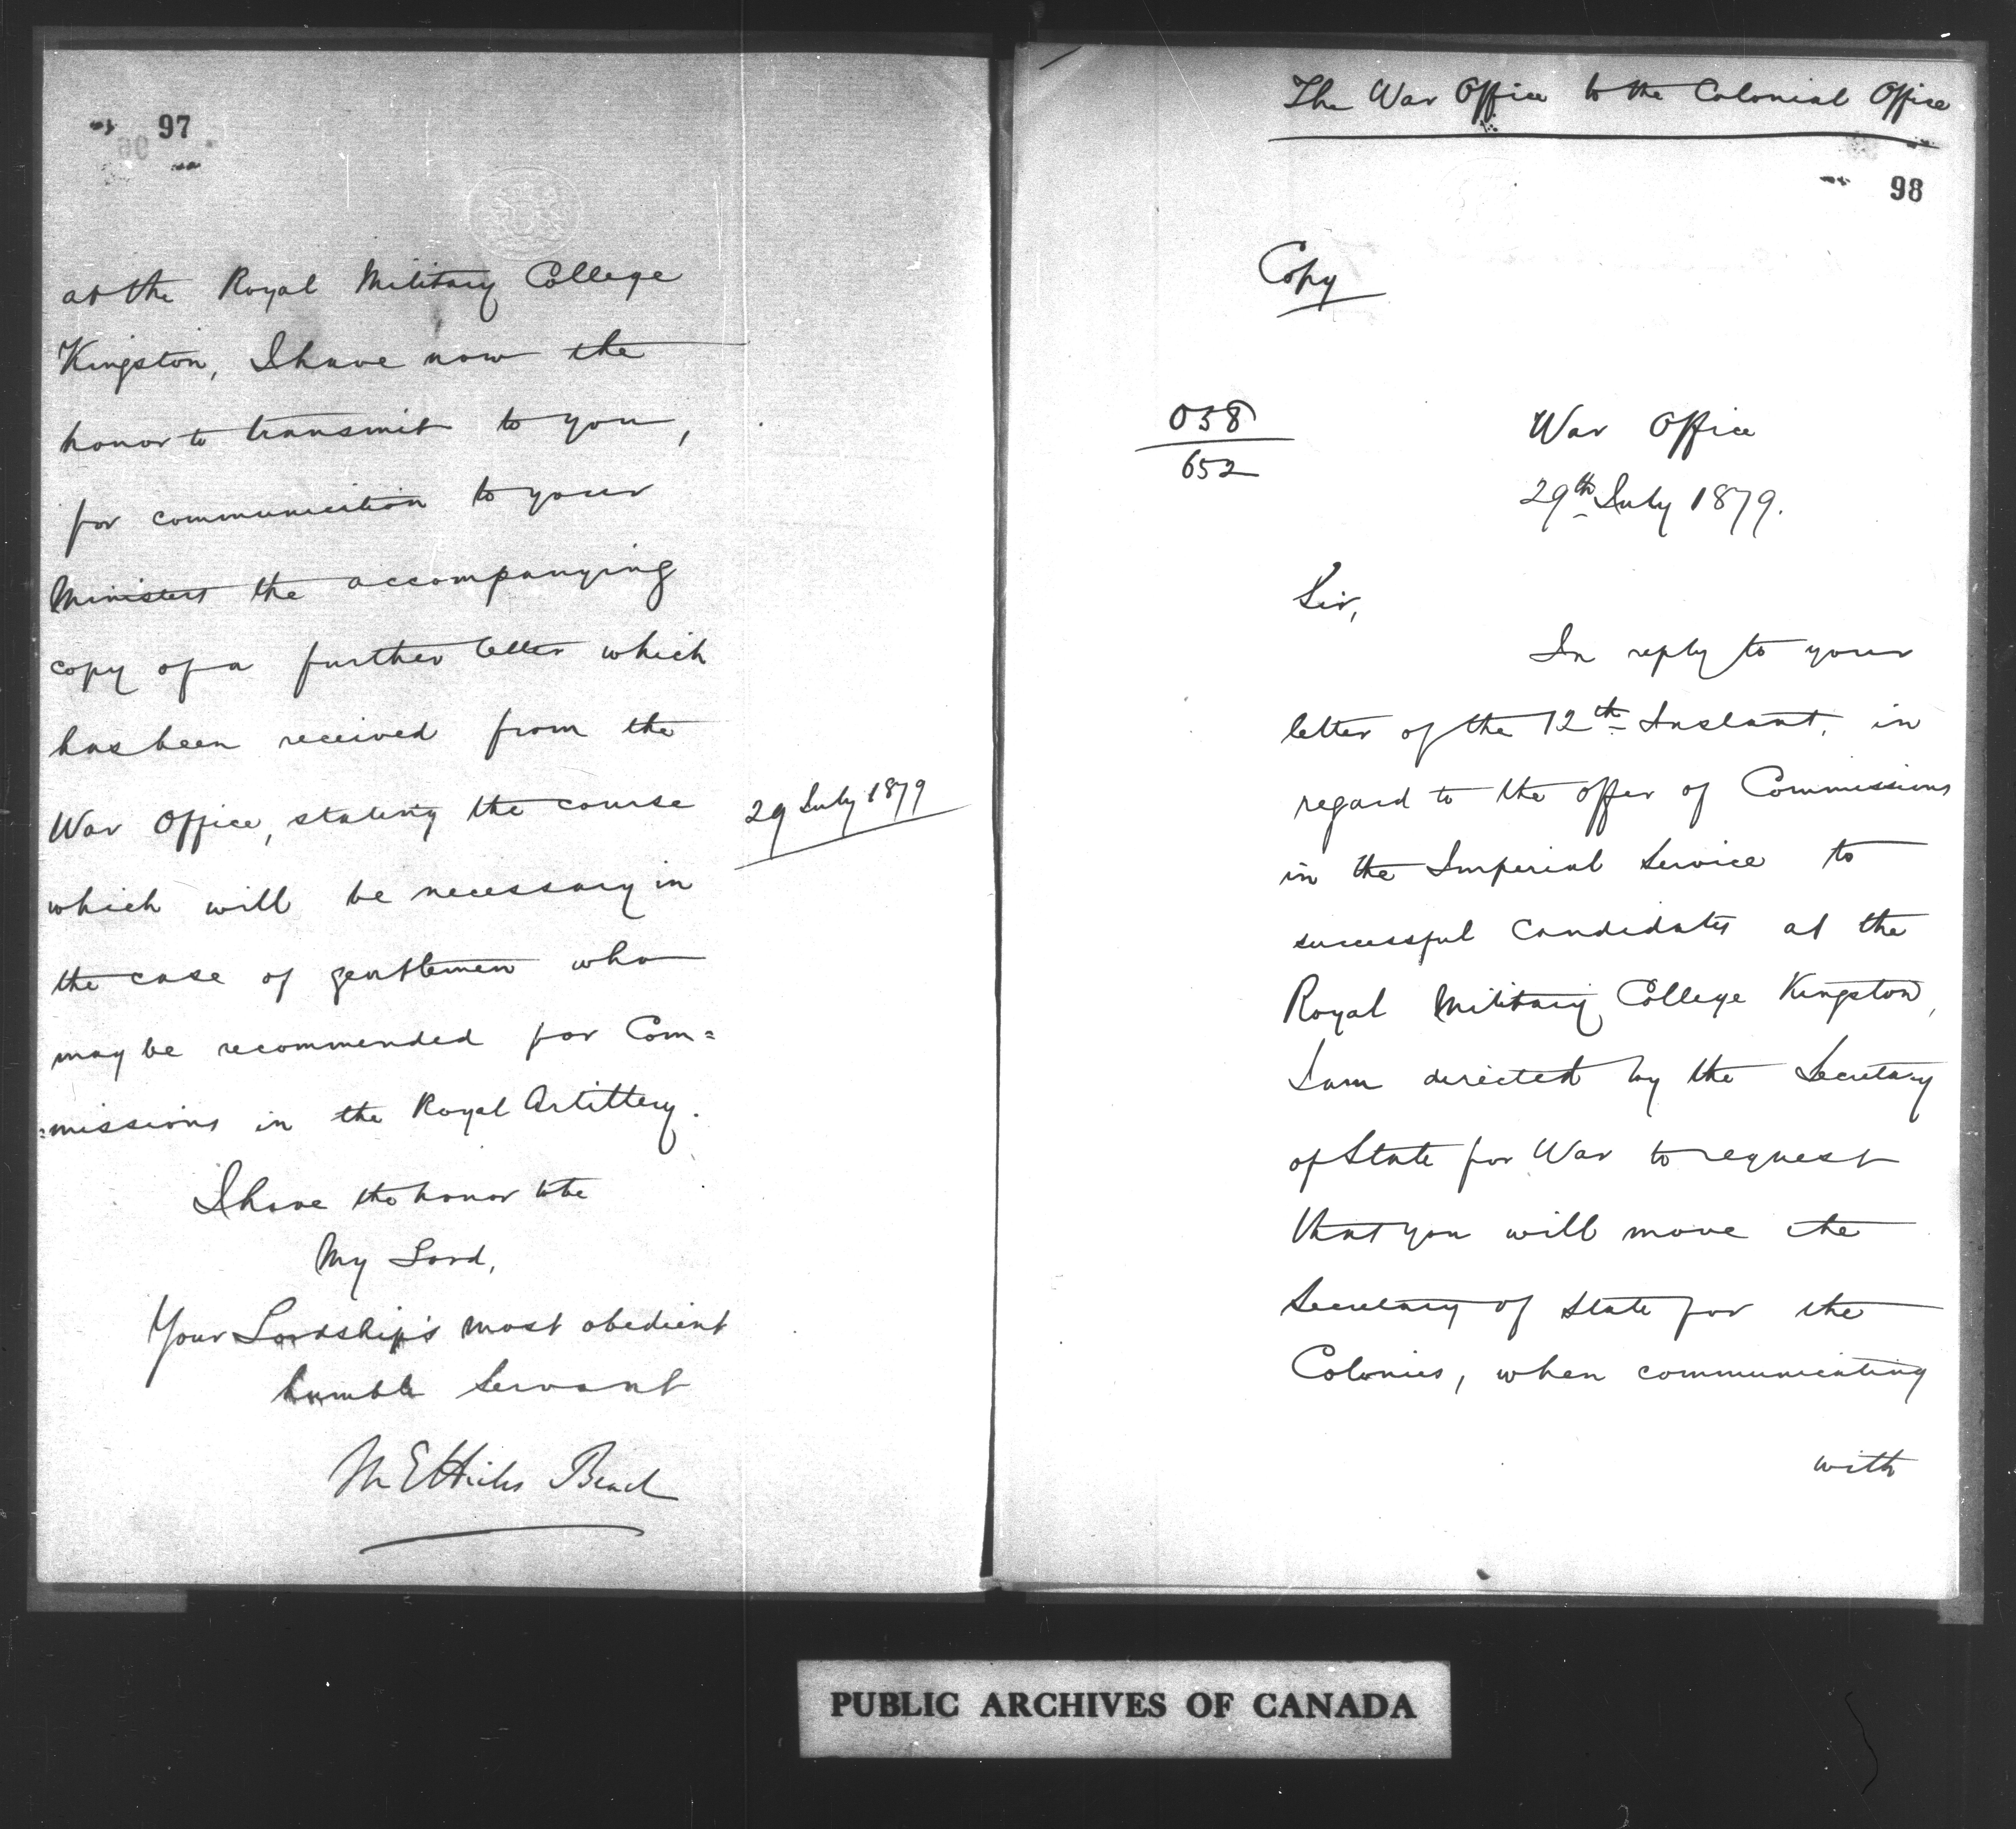 97
at the Royal Military College
Kingston, I have now the
honor to transmit to you,
for communication to your
Ministers the accompanying
copy of a further letter which
has been received from the
War Office, stating the course
29 July 1879
which will be necessary in
the case of gentlemen who
may be recommended for Com=
=missions in the Royal Artillery.
I have the honor to be
My Lord,
Your Lordship's most obedient
humble Servant
M E Hicks Beach
The War Office to the Colonial Office
98
Copy
058
652
War Office
29th July 1879.
Sir,
In reply to your
letter of the 12th Instant, in
regard to the offer of Commissions
in the Imperial Service to
successful Candidates at the
Royal Military College Kingston,
I am directed by the Secretary
of State for War to request
that you will move the
Secretary of State for the
Colonies, when communicating
with
PUBLIC ARCHIVES OF CANADA